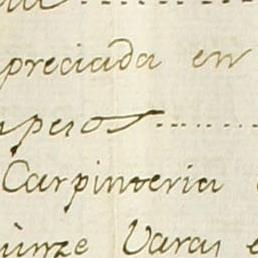 preciada en
pesos
Carpinteria
Varas